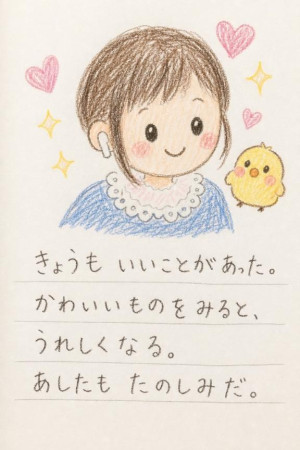 きょうも いいことがあった。
かわいいものを みると、
うれしくなる。
あしたも たのしみだ。